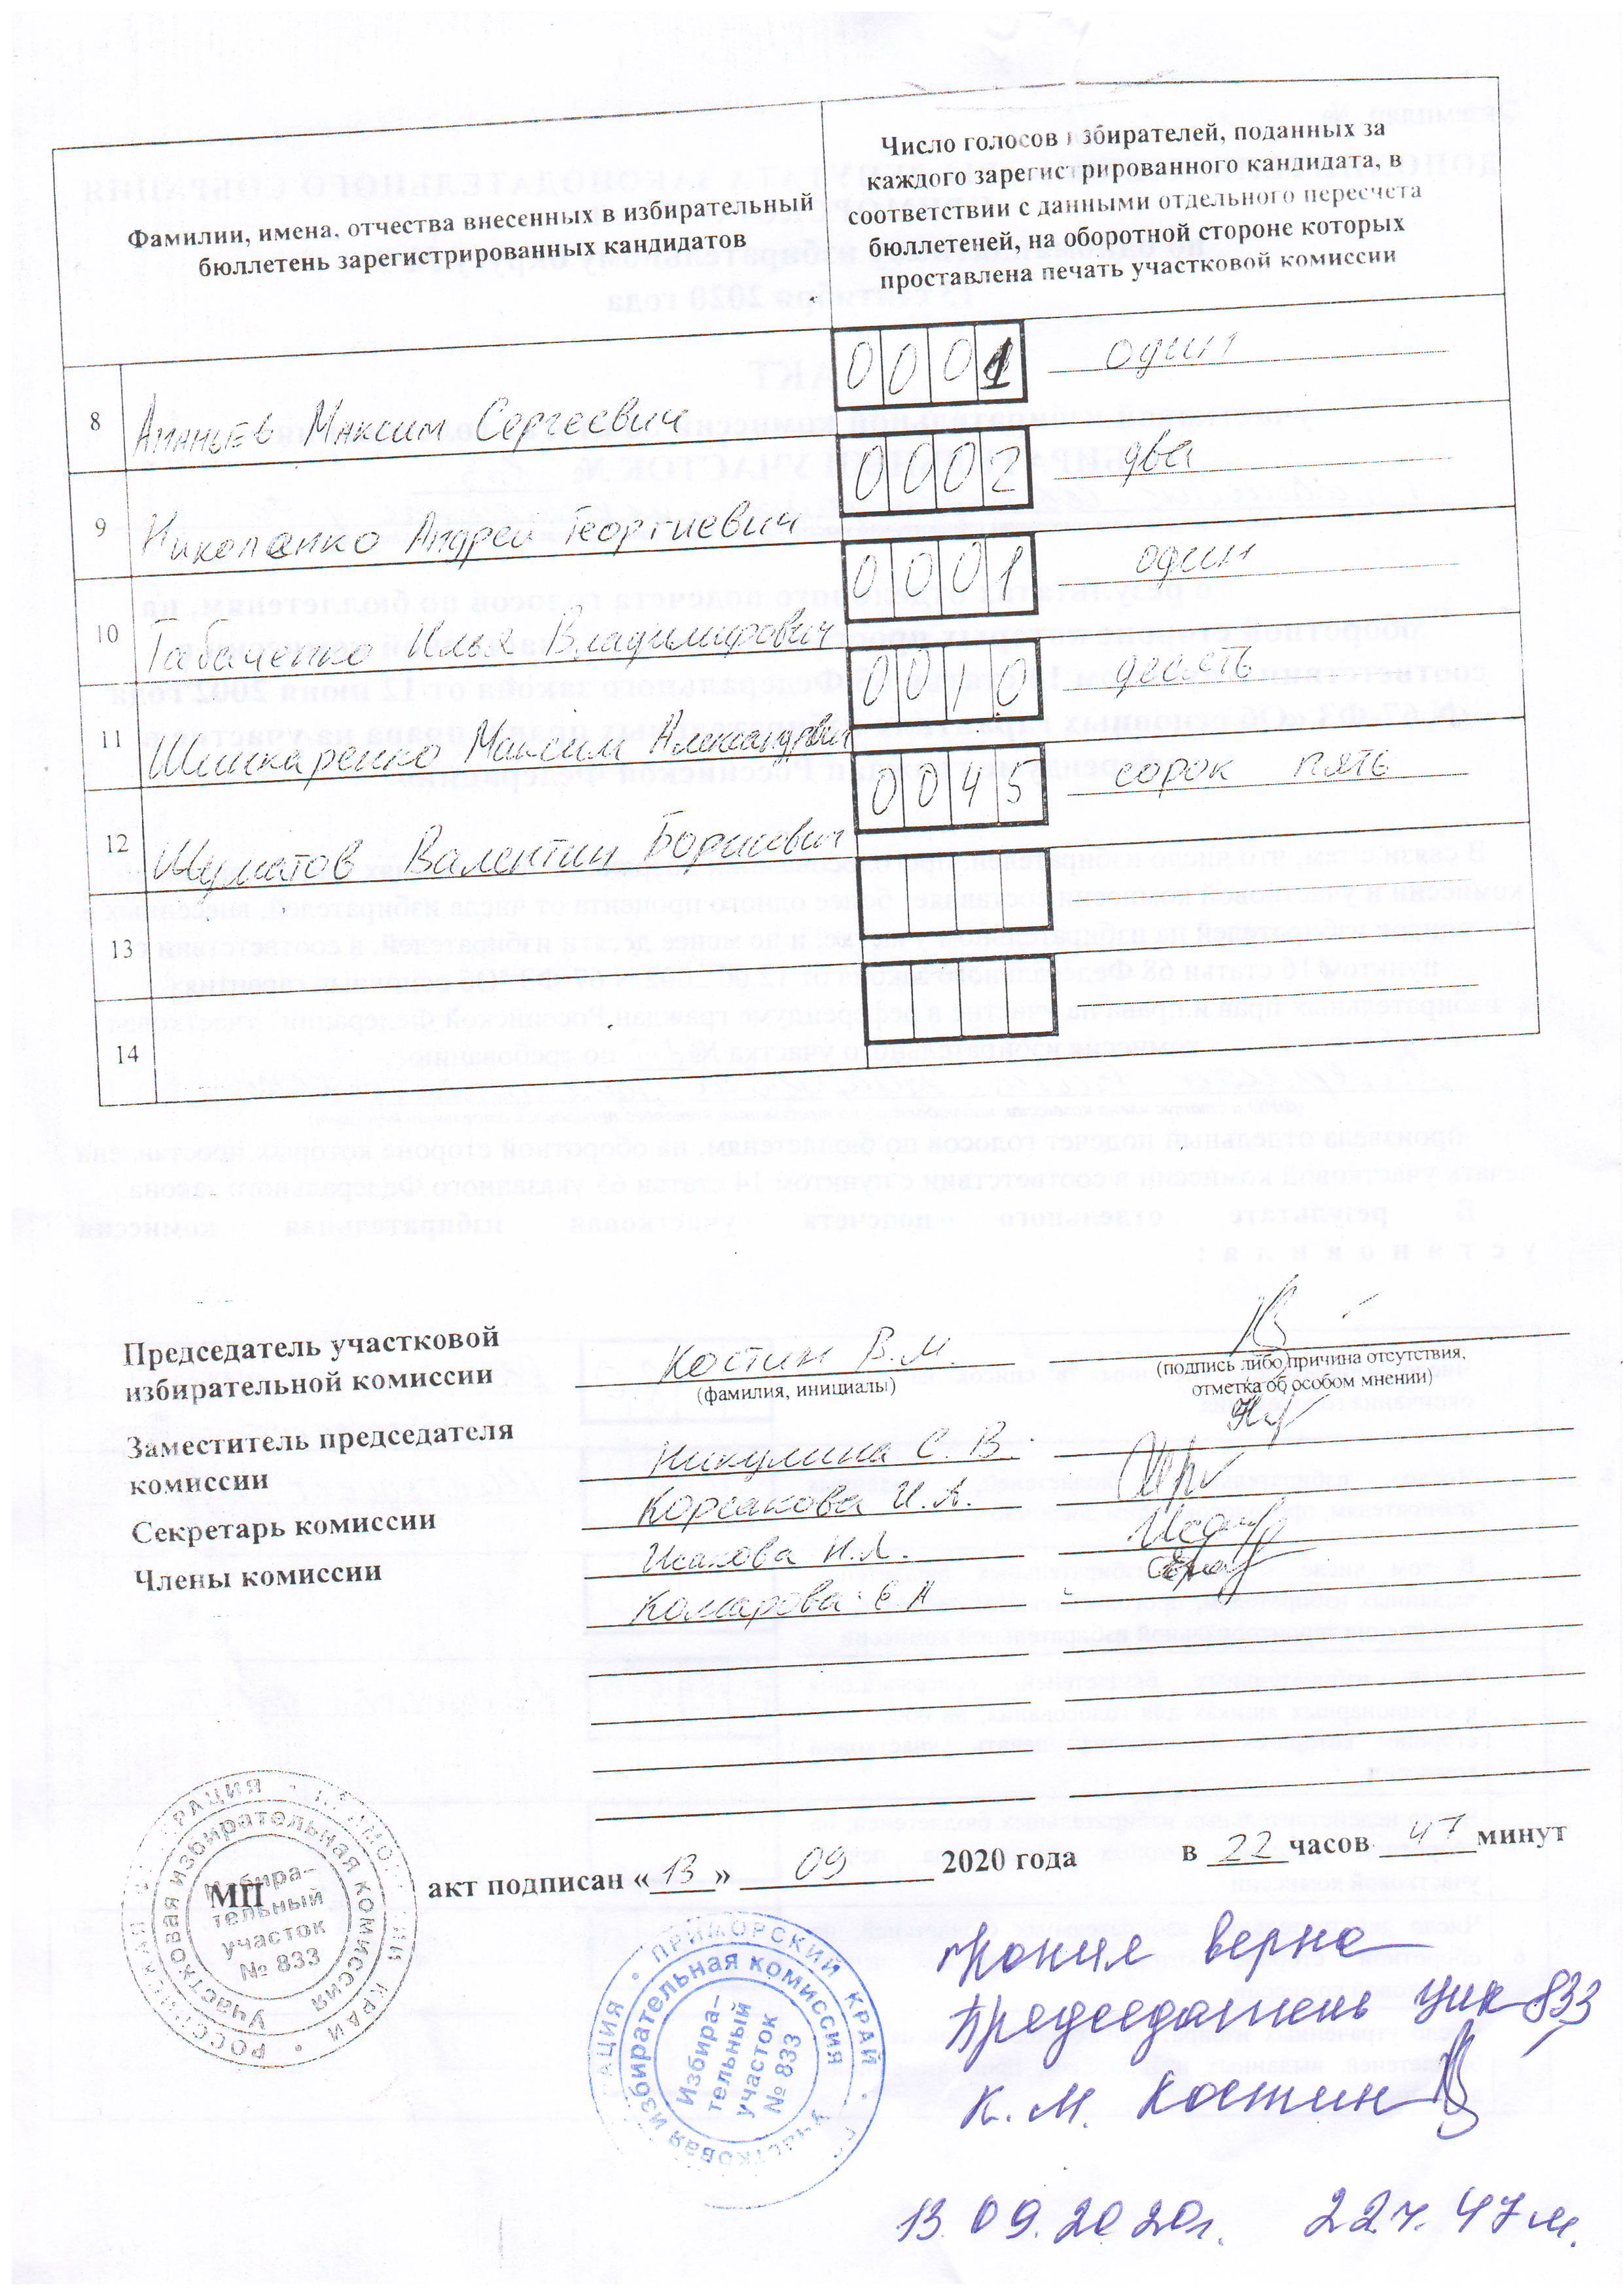 Фамилии, имена, отчества внесенных в избирательный
бюллетень зарегистрированных кандидатов
Число голосов избирателей, поданных за
каждого зарегистрированного кандидата, в
соответствии с данными отдельного пересчета
бюллетеней, на оборотной стороне которых
проставлена печать участковой комиссии
8 Ананьев Максим Сергеевич 0001 один
9 Николаенко Андрей Георгиевич 0002 два
10 Табаченко Илья Владимирович 0001 один
11 Шинкаренко Максим Александрович 0010 десять
12 Шуматов Валентин Борисович 0045 сорок пять
13
14
Председатель участковой
избирательной комиссии Костин В.М.
(фамилия, инициалы)
(подпись либо причина отсутствия,
отметка об особом мнении)
Заместитель председателя
комиссии Никулина С.В.
Секретарь комиссии Корсакова И.А.
Члены комиссии Исакова Н.Л.
Комарова Е А
МП акт подписан «13» 09 2020 года в 22 часов 47 минут
РОССИЙСКАЯ ФЕДЕРАЦИЯ • ПРИМОРСКИЙ КРАЙ •
Участковая избирательная комиссия
Избира-
тельный
участок
№ 833
АЦИЯ • ПРИМОРСКИЙ КРАЙ •
Участковая избирательная комиссия
Избира-
тельный
участок
№ 833
копия верна
Председатель УИК 833
К.М. Костин
13.09.2020г. 22ч.47м.